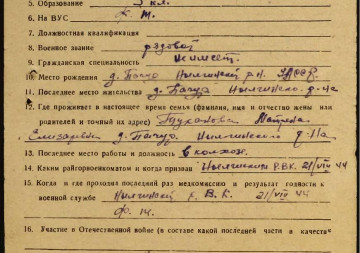 5. Образование 3 кл.
6. На ВУС
7. Должностная квалификация
8. Военное звание рядовой
9. Гражданская специальность
10. Место рождения д. Нылгинский р-н. УАССР.
11. Последнее место жительства д. Нылгинско. р-на
12. Где проживает в настоящее время семья (фамилия, имя и отчество жены или
родителей и точный их адрес) Матрена
д. Нылгинско. р-на
13. Последнее место работы и должность в колхозе
14. Каким райгорвоенкоматом и когда призван Нылгинским РВК. 21/VIII 44
15. Когда и где проходил последний раз медкомиссию и результат годности к
военной службе Нылгинский Р. В. К. 21/VIII 44
16. Участие в Отечественной войне (в составе какой последней части и в качестве